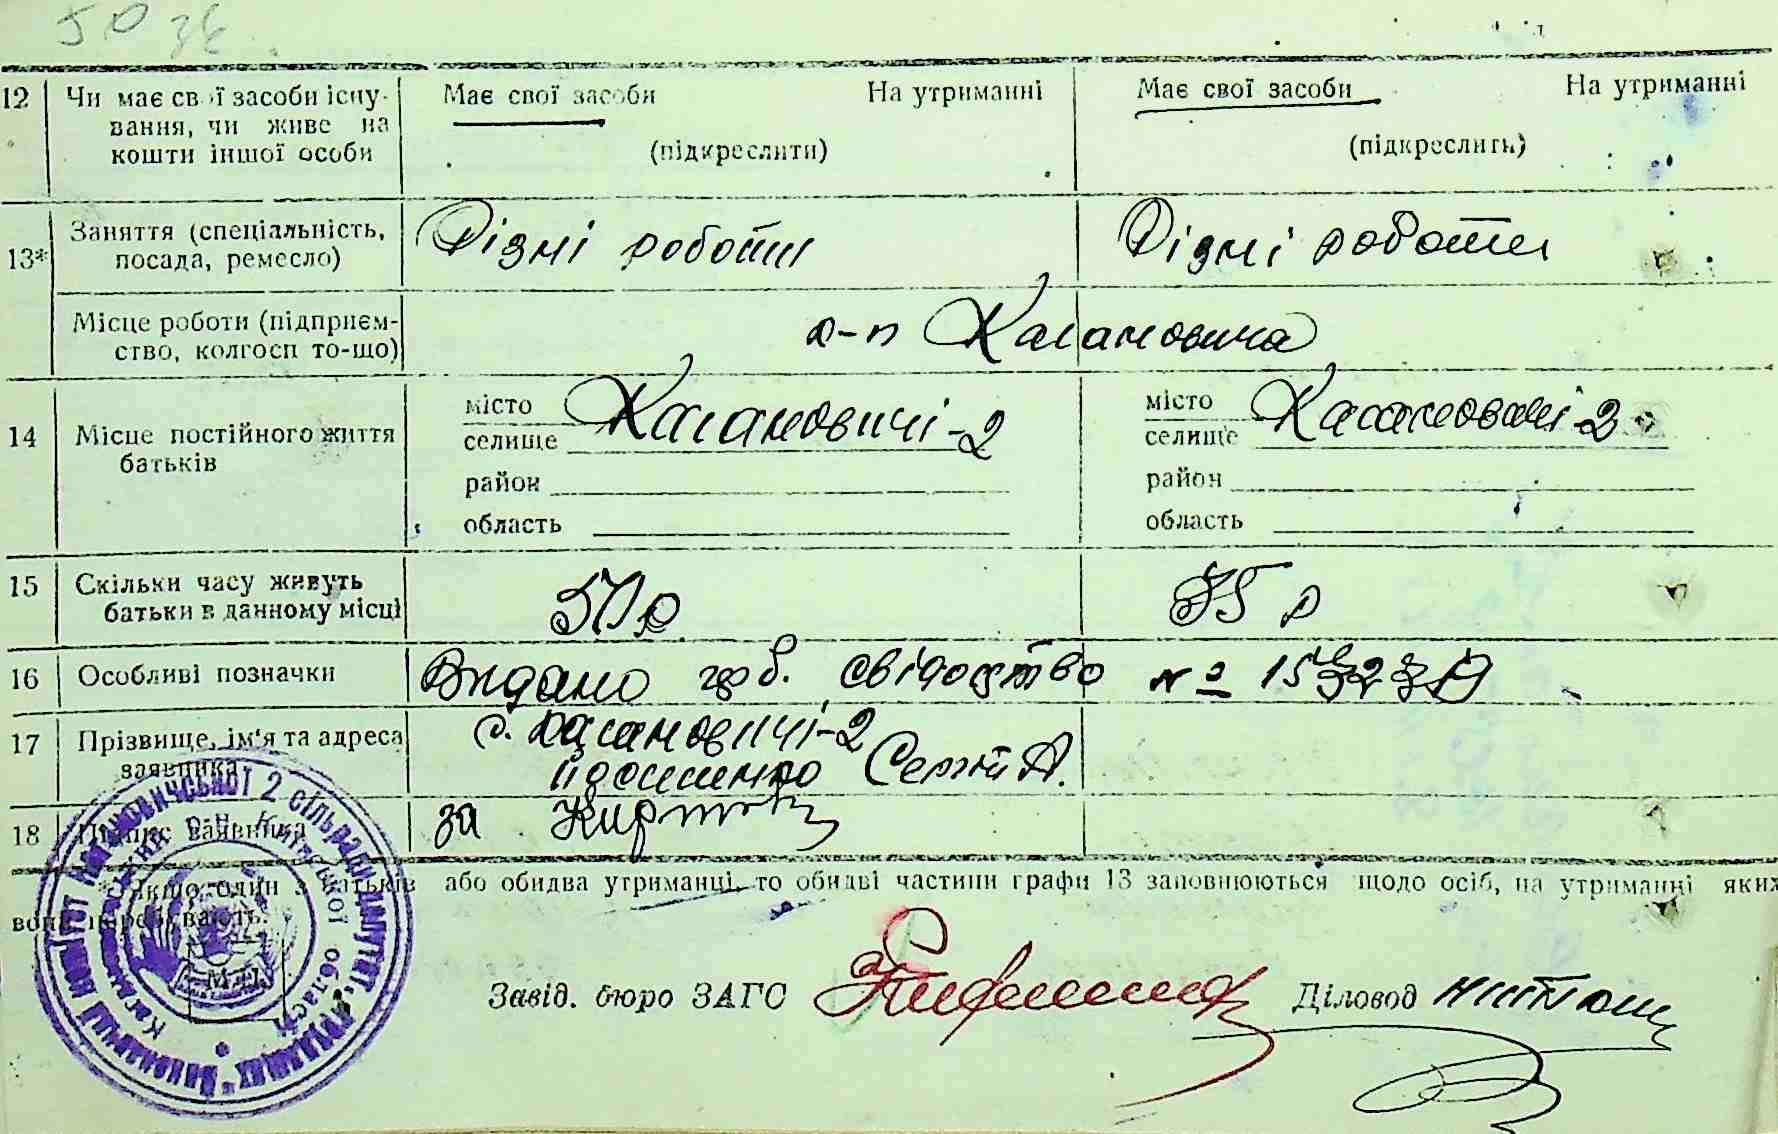 12 Чи має свої засоби існу- Має свої засоби На утриманні Має свої засоби На утриманні
вання, чи живе на
кошти іншої особи (підкреслити) (підкреслить)
13* Заняття (спеціальність, посада, ремесло) Різні роботи Різні роботи
Місце роботи (підприєм-
ство, колгосп то-що) к-п Кагановича
14 Місце постійного життя батьків
місто Кагановичі-2 місто Кагановичі-2
селище селище
район район
область область
15 Скільки часу живуть
батьки в данному місці 50 р 35 р
16 Особливі позначки Видано свідоцтво №
17 Прізвище, ім'я та адреса с. Кагановичі-2
заявника Сергій А.
18 Підпис заявника за
* Якщо один з батьків або обидва утриманці, то обидві частини графи 13 заповнюються щодо осіб, на утриманні яких
вони перебувають.
М.П.
Завід. бюро ЗАГС Діловод